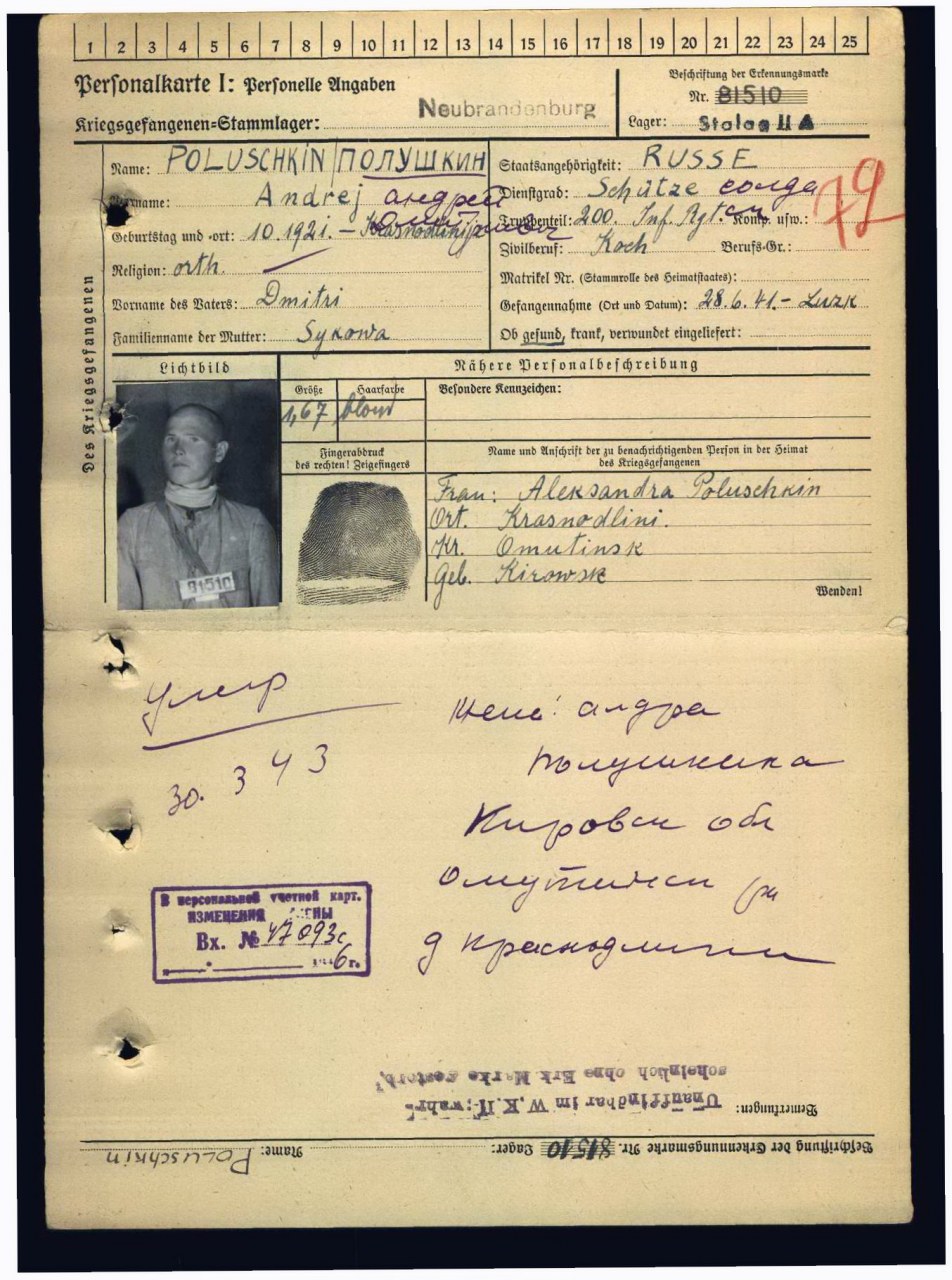 1 2 3 4 5 6 7 8 9 10 11 12 13 14 15 16 17 18 19 20 21 22 23 24 25
Personalkarte I: Personelle Angaben
Kriegsgefangenen-Stammlager: Neubrandenburg
Beschriftung der Erkennungsmarke
Nr. 81510
Lager: Stalag II A
Des Kriegsgefangenen
Name: POLUSCHKIN ПОЛУШКИН
Vorname: Andrej андрей
Geburtstag und -ort: 10.1921. – Krasnodlini
Religion: orth.
Vorname des Vaters: Dmitri
Familienname der Mutter: Sykowa
Staatsangehörigkeit: RUSSE
Dienstgrad: Schütze солда
Truppenteil: 200. Inf. Rgt. Komp. usw.:
Zivilberuf: Koch Berufs-Gr.:
Matrikel Nr. (Stammrolle des Heimatstaates):
Gefangennahme (Ort und Datum): 28.6.41. – Luzk
Ob gesund, krank, verwundet eingeliefert:
Lichtbild
81510
Nähere Personalbeschreibung
Größe Haarfarbe Besondere Kennzeichen:
1,67 blond
Fingerabdruck
des rechten! Zeigefingers
Name und Anschrift der zu benachrichtigenden Person in der Heimat
des Kriegsgefangenen
Frau: Aleksandra Poluschkin
Ort. Krasnodlini.
Kr. Omutinsk
Geb. Kirowsk
Wenden!
умер
30. 3 43
Жена: алдра
Полушкина
Кировск обл
Омутнинск рн
д Краснодлини
В персональной учетной карт.
ИЗМЕНЕНИЯ
Вх. № 47093с
6г.
Bemerkungen: Unauffindbar im W.K.II; wahr-
scheinlich ohne Erk Marke gestorb.
Beschriftung der Erkennungsmarke Nr. 81510 Lager: Name: POLUSCHKIN